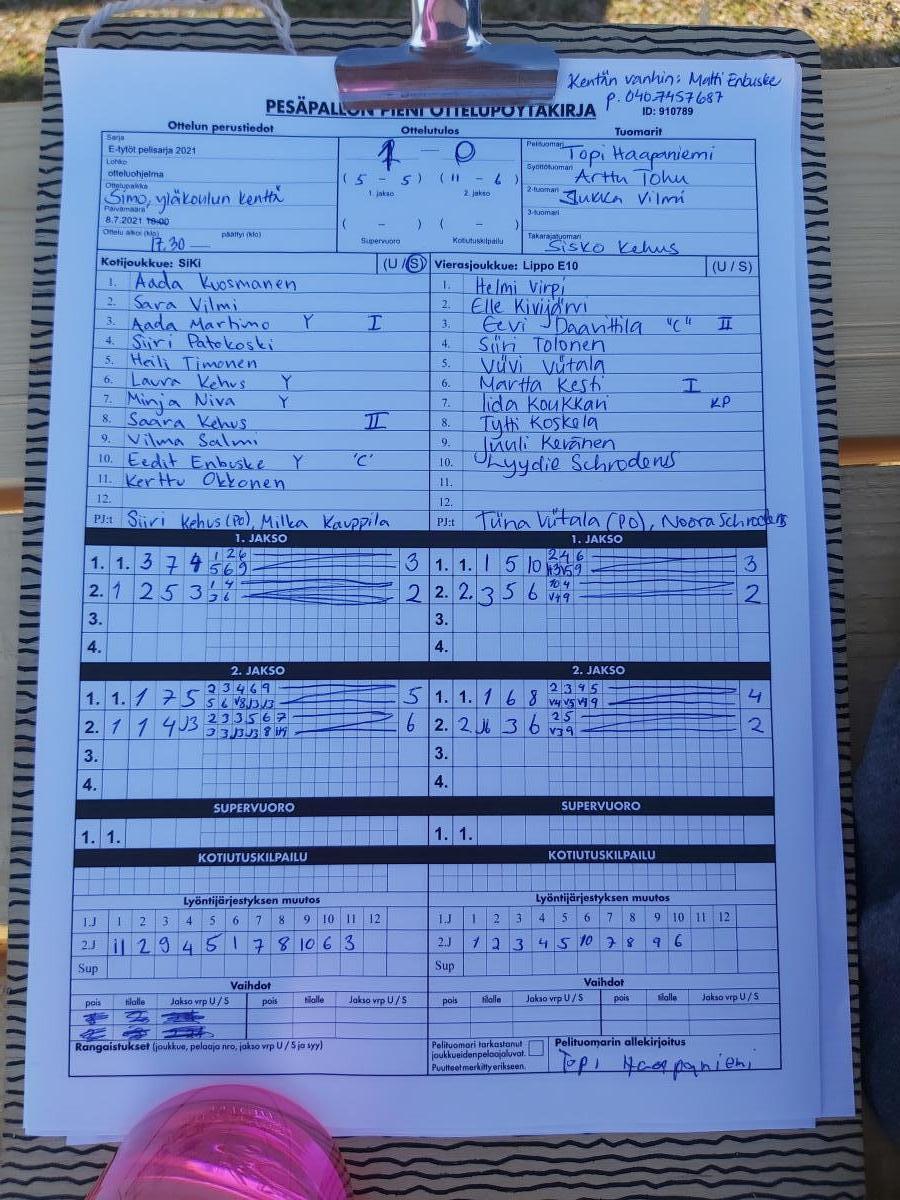 Kentän vanhin: Matti Enbuske
p. 0407457687
PESÄPALLON PIENI OTTELUPÖYTÄKIRJA
ID: 910789
Ottelun perustiedot
Ottelutulos
Tuomarit
Sarja
E-tytöt pelisarja 2021
Lohko
otteluohjelma
Ottelupaikka
Simo, yläkoulun kenttä
Päivämäärä
8.7.2021 18:00
Ottelu alkoi (klo) päättyi (klo)
17.30
1 – 0
( 5 – 5 ) ( 11 – 6 )
1. jakso 2. jakso
( – ) ( – )
Supervuoro Kotiutuskilpailu
Pelituomari Topi Haapaniemi
Syöttötuomari Arttu Tohu
2-tuomari Jukka Vilmi
3-tuomari
Takarajatuomari Sisko Kehus
Kotijoukkue: SiKi (U / S)
1. Aada Kuosmanen
2. Sara Vilmi
3. Aada Martimo Y I
4. Siiri Patokoski
5. Heili Timonen
6. Laura Kehus Y
7. Minja Niva Y
8. Saara Kehus II
9. Vilma Salmi
10. Eedit Enbuske Y 'C'
11. Kerttu Okkonen
12.
PJ:t Siiri Kehus (PO), Milka Kauppila
Vierasjoukkue: Lippo E10 (U / S)
1. Helmi Virpi
2. Elle Kivijärvi
3. Eevi Daavittila "C" II
4. Siiri Tolonen
5. Viivi Viitala
6. Martta Kesti I
7. Iida Koukkari KP
8. Tytti Koskela
9. Juuli Keränen
10. Lyydie Schroderus
11.
12.
PJ:t Tiina Viitala (PO), Noora Schroderus
1. JAKSO
1. 1. 3 7 4 3
2. 1 2 5 3 2
3.
4.
1. JAKSO
1. 1. 1 5 10 3
2. 2. 3 5 6 2
3.
4.
2. JAKSO
1. 1. 1 7 5 2 3 4 6 9 5
2. 1 1 4 J3 2 3 3 5 6 7 6
3.
4.
2. JAKSO
1. 1. 1 6 8 2 3 4 5 4
2. 3 6 2 5 2
3.
4.
SUPERVUORO
1. 1.
SUPERVUORO
1. 1.
KOTIUTUSKILPAILU
KOTIUTUSKILPAILU
Lyöntijärjestyksen muutos
1.J 1 2 3 4 5 6 7 8 9 10 11 12
2.J 11 2 9 4 5 1 7 8 10 6 3
Sup
Lyöntijärjestyksen muutos
1.J 1 2 3 4 5 6 7 8 9 10 11 12
2.J 1 2 3 4 5 10 7 8 9 6
Sup
Vaihdot
pois tilalle Jakso vrp U / S pois tilalle Jakso vrp U / S
Vaihdot
pois tilalle Jakso vrp U / S pois tilalle Jakso vrp U / S
Rangaistukset (joukkue, pelaaja nro, jakso vrp U / S ja syy)
Pelituomari tarkastanut
joukkueidenpelaajaluvat.
Puutteet merkitty erikseen.
Pelituomarin allekirjoitus
Topi Haapaniemi